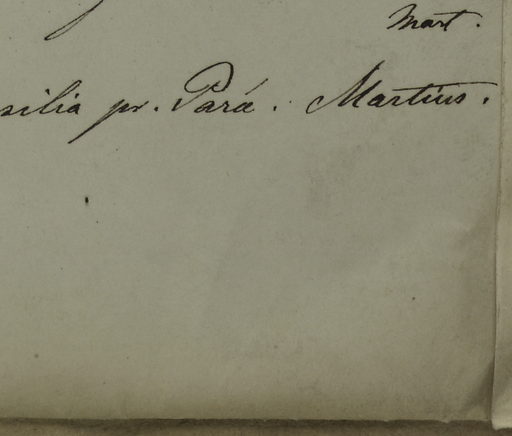 Mart.
silia pr. Pará. Martius.